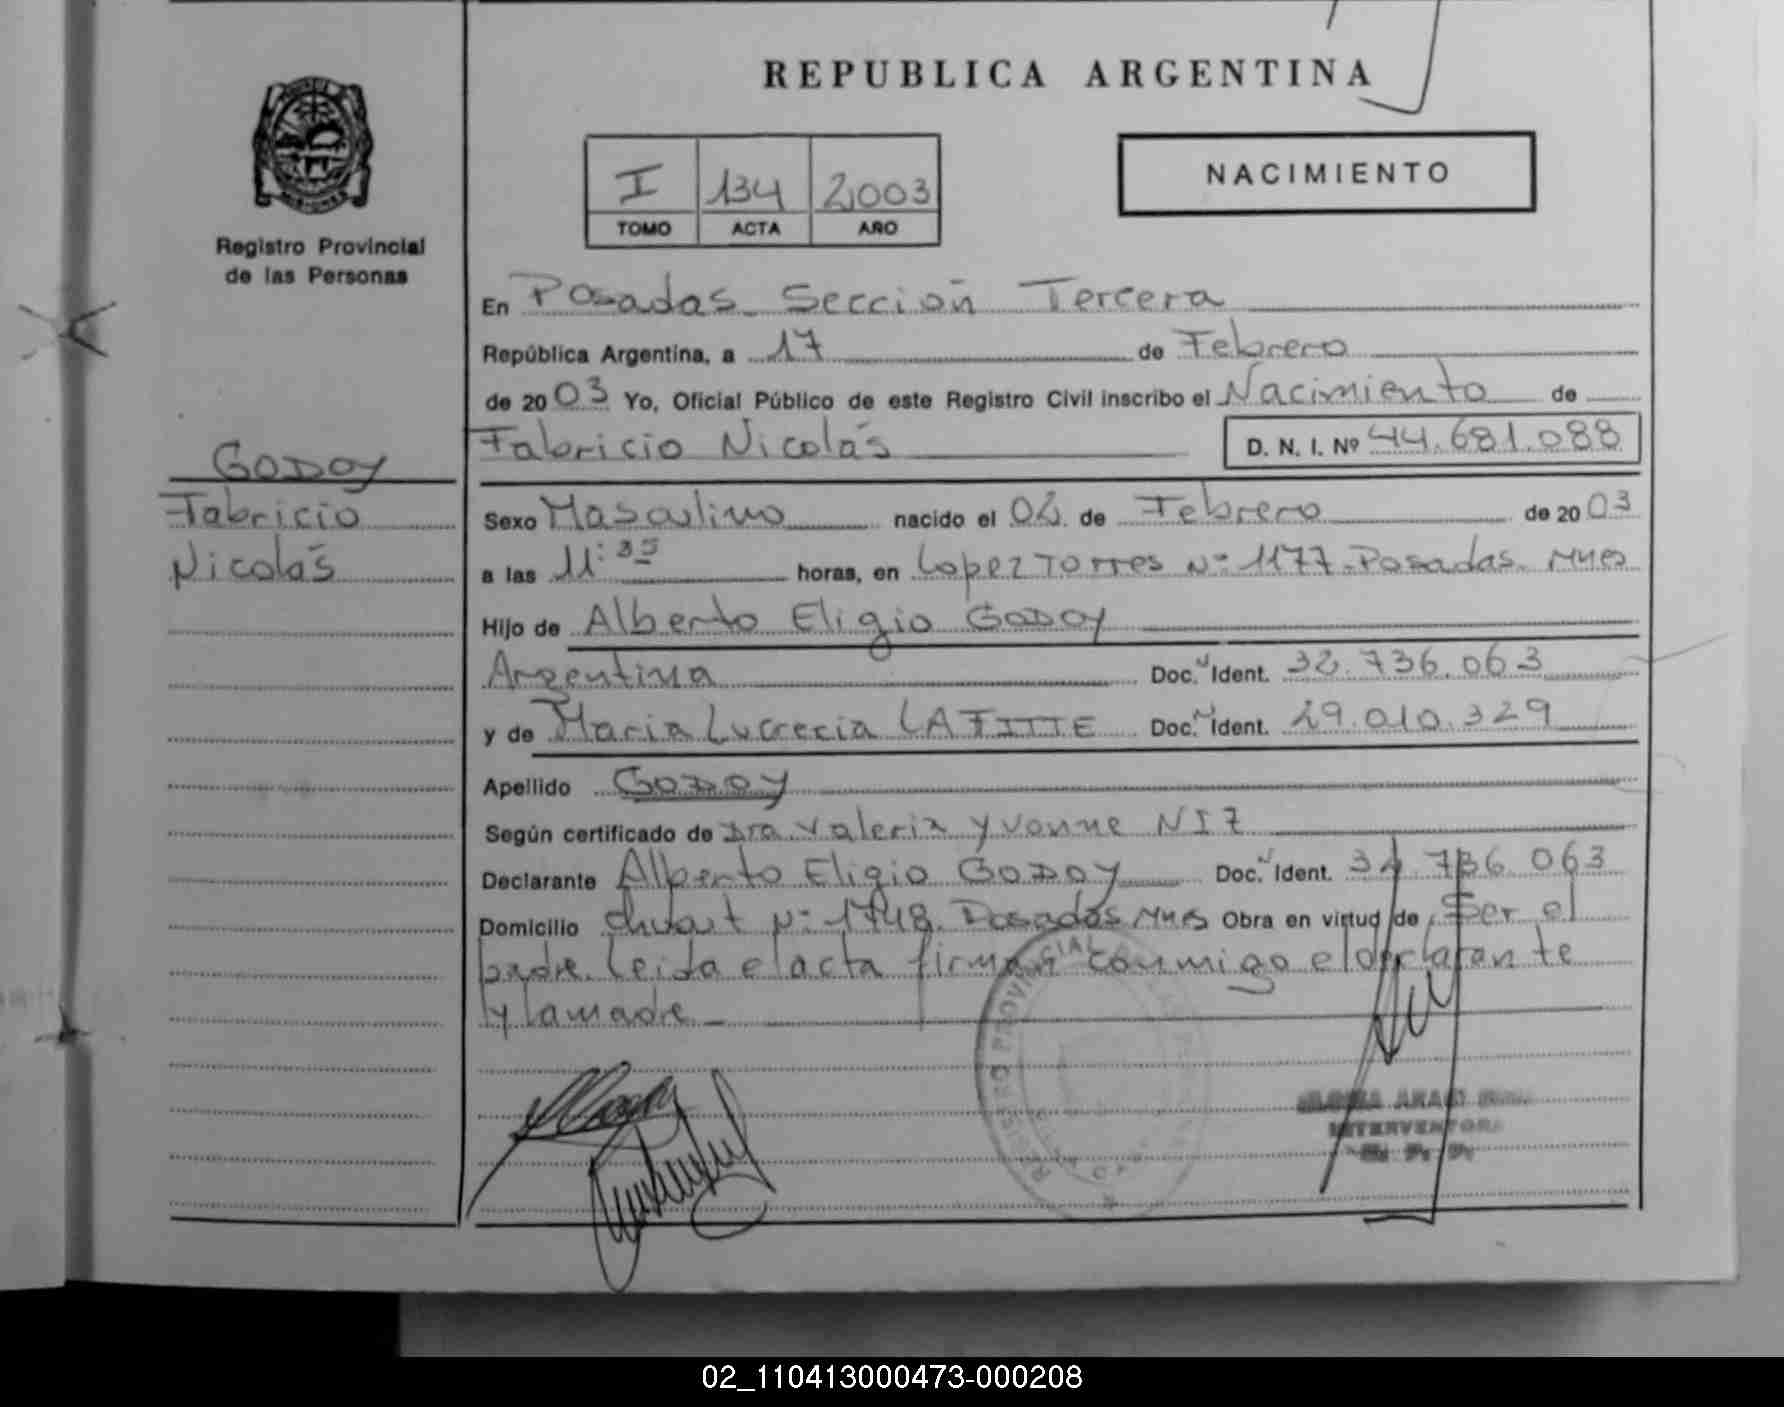 REPUBLICA ARGENTINA
I 134 2003
TOMO ACTA AÑO
NACIMIENTO
MISIONES
Registro Provincial
de las Personas
GODOY
Fabricio
Nicolás
En Posadas Sección Tercera
República Argentina, a 17 de Febrero
de 2003 Yo, Oficial Público de este Registro Civil inscribo el Nacimiento de
Fabricio Nicolás D. N. I. Nº 44.681.088
Sexo Masculino nacido el 02 de Febrero de 2003
a las 11:35 horas, en Lopez Torres Nº 1177-Posadas. Mnes
Hijo de Alberto Eligio GODOY
Argentina Doc. Ident. 32.736.063
y de Maria Lucrecia LAFITTE Doc. Ident. 29.010.329
Apellido GODOY
Según certificado de Dra Valeria Yvonne NIZ
Declarante Alberto Eligio GODOY Doc. Ident. 32.736.063
Domicilio Nº 1748. Posadas Mnes Obra en virtud de Ser el
padre. Leida el acta firman conmigo el declarante
y la madre
REGISTRO PROVINCIAL DE LAS
INTERVENTORA
02_110413000473-000208